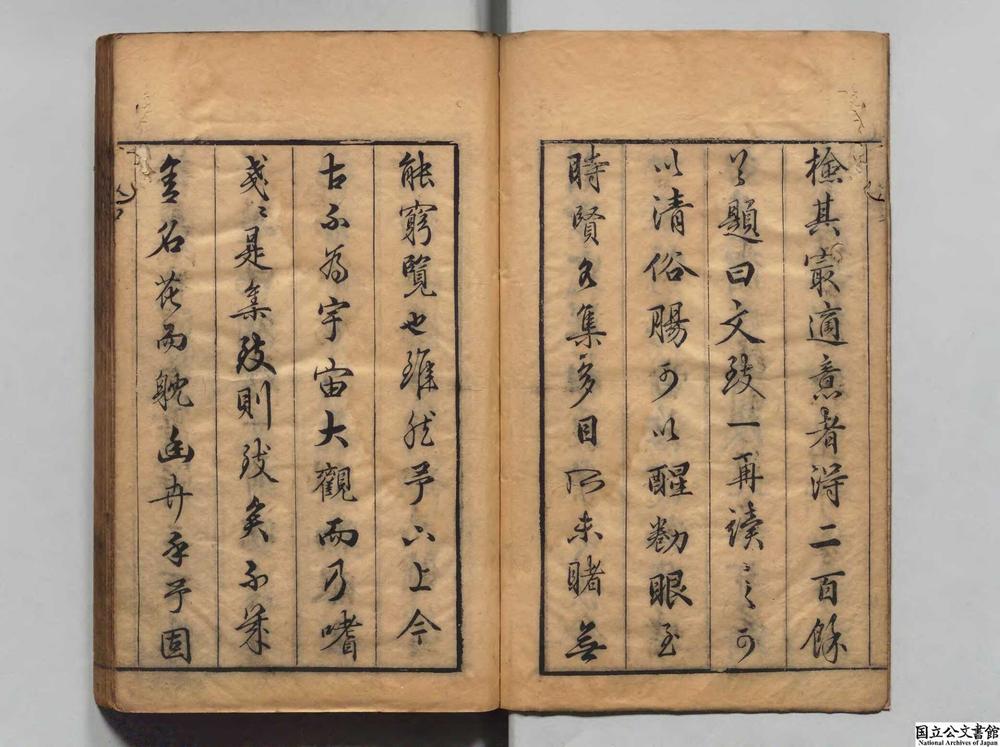 檢其最適意者淂二百餘
首題曰文致一再讀之可
以清俗腸可以醒勌眼至
時賢名集多目所未睹無
能窮覽也雖然予上下今
古不爲宇宙大觀而乃嗜
戔戔是集致則致矣不幾
舍名花而躭幽卉乎予固
国立公文書館
National Archives of Japan